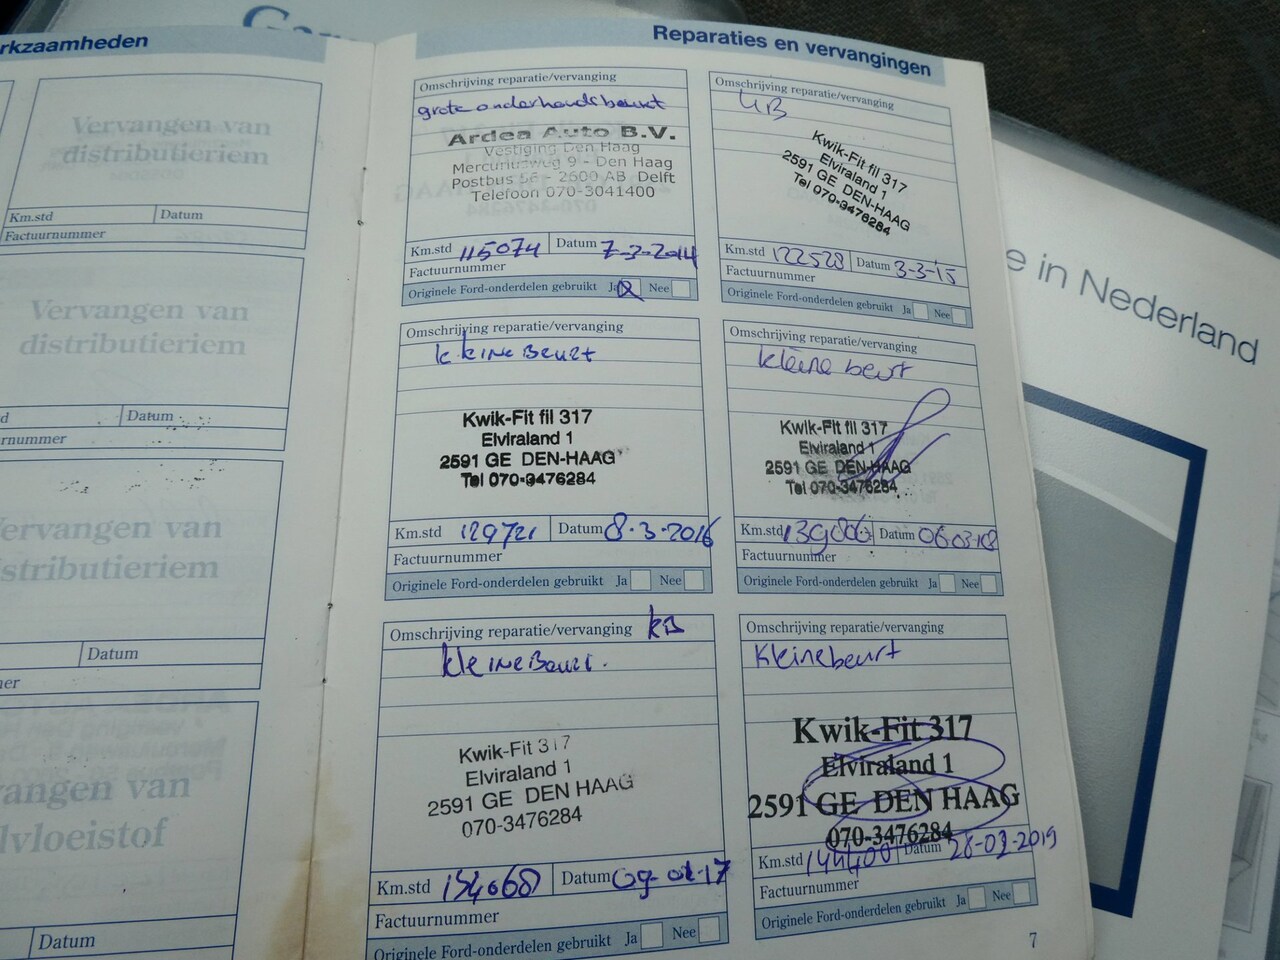 rkzaamheden
Vervangen van
distributieriem
Km.std
Datum
Factuurnummer
Vervangen van
distributieriem
d
Datum
rnummer
ervangen van
stributieriem
Datum
er
angen van
lvloeistof
Datum
Reparaties en vervangingen
Omschrijving reparatie/vervanging
grote onderhoudsbeurt
Ardea Auto B.V.
Vestiging Den Haag
Mercuriusweg 9 - Den Haag
Postbus 56 - 2600 AB Delft
Telefoon 070-3041400
Km.std 115074 Datum 7-3-2014
Factuurnummer
Originele Ford-onderdelen gebruikt Ja Nee
Omschrijving reparatie/vervanging
Kwik-Fit fil 317
Elviraland 1
2591 GE DEN-HAAG
Tel 070-3476284
Km.std 122528 Datum 3-3-15
Factuurnummer
Originele Ford-onderdelen gebruikt Ja Nee
Omschrijving reparatie/vervanging
kleine Beurt
Kwik-Fit fil 317
Elviraland 1
2591 GE DEN-HAAG
Tel 070-3476284
Km.std 129721 Datum 8-3-2016
Factuurnummer
Originele Ford-onderdelen gebruikt Ja Nee
Omschrijving reparatie/vervanging
kleine beurt
Kwik-Fit fil 317
Elviraland 1
2591 GE DEN-HAAG
Tel 070-3476284
Km.std 139086 Datum 06-03-18
Factuurnummer
Originele Ford-onderdelen gebruikt Ja Nee
Omschrijving reparatie/vervanging KB
kleine Beurt.
Kwik-Fit 317
Elviraland 1
2591 GE DEN HAAG
070-3476284
Km.std Datum
Factuurnummer
Originele Ford-onderdelen gebruikt Ja Nee
Omschrijving reparatie/vervanging
Kleinebeurt
Kwik-Fit 317
Elviraland 1
2591 GE DEN HAAG
070-3476284
Km.std 144400 Datum
Factuurnummer
Originele Ford-onderdelen gebruikt Ja Nee
7
e in Nederland